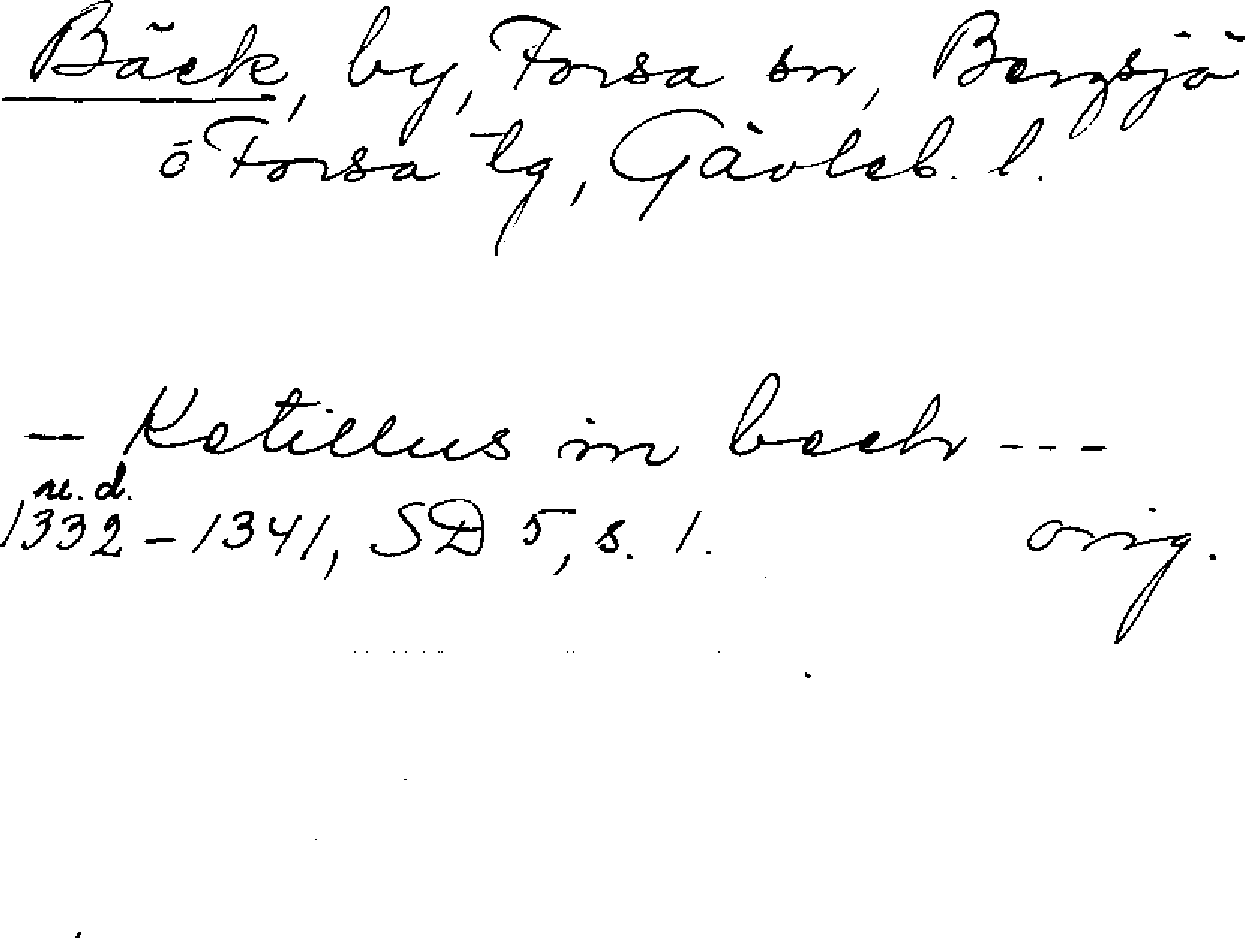 Bäck, by, Forsa sn, Bergsjö
o Forsa tg, Gävleb. l.
– Ketillus in bech ---
u. d.
1332–1341, SD 5, s. 1. orig.